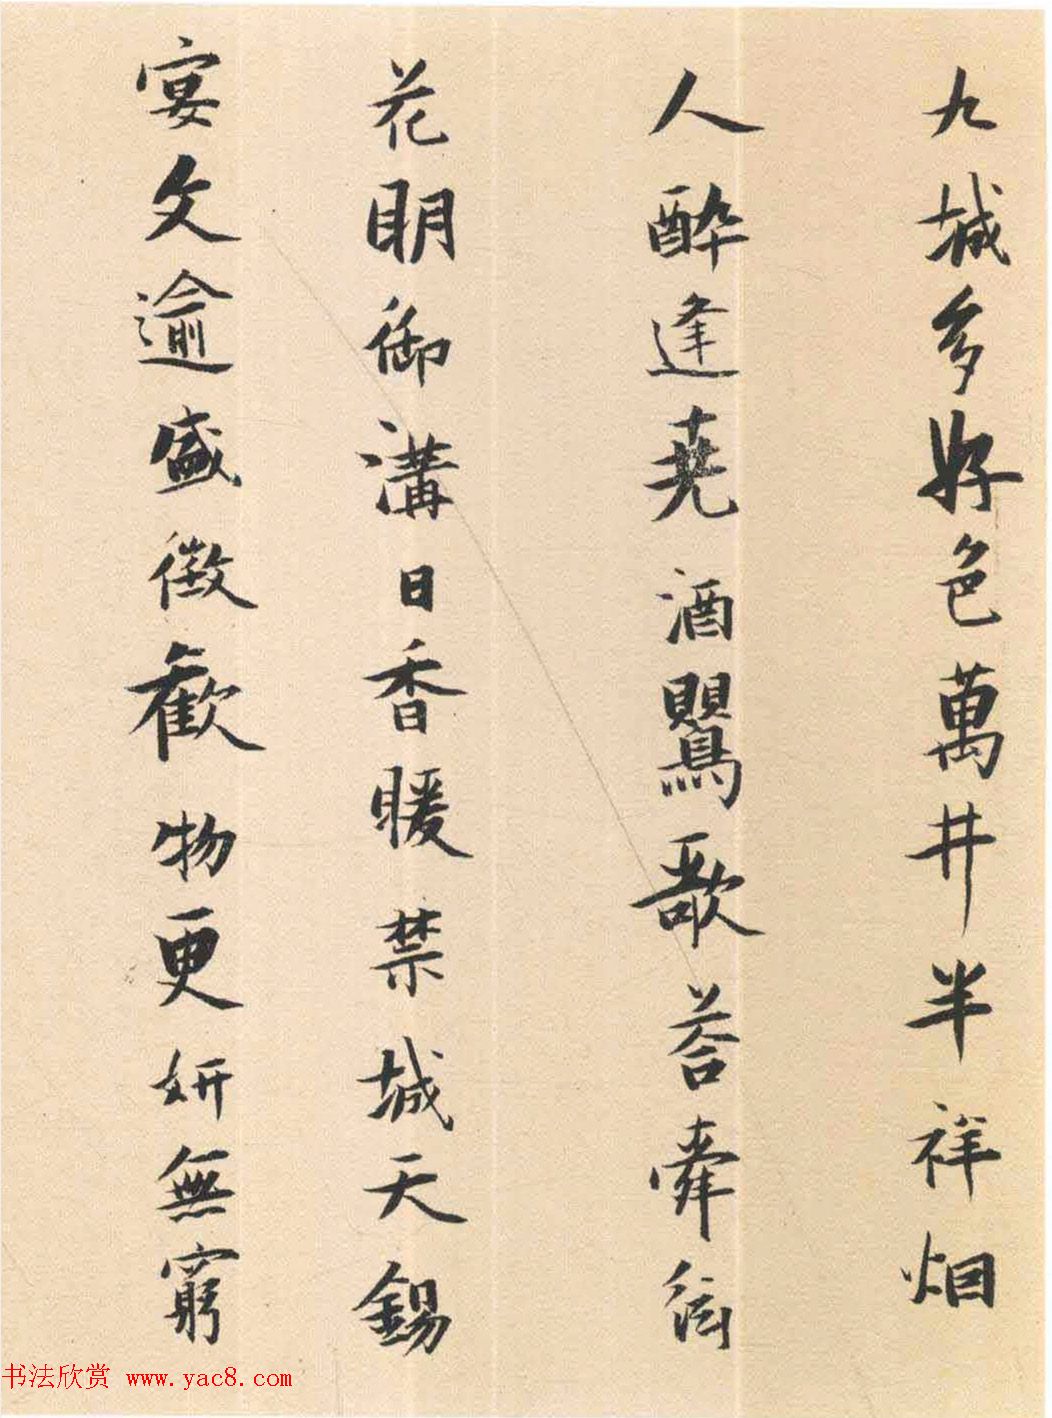 九城多好色萬井半祥烟
人醉逢尭酒鸎歌荅舜絃
花明御溝日香暖禁城天錫
宴文逾盛徴歡物更妍無窮
书法欣赏 www.yac8.com